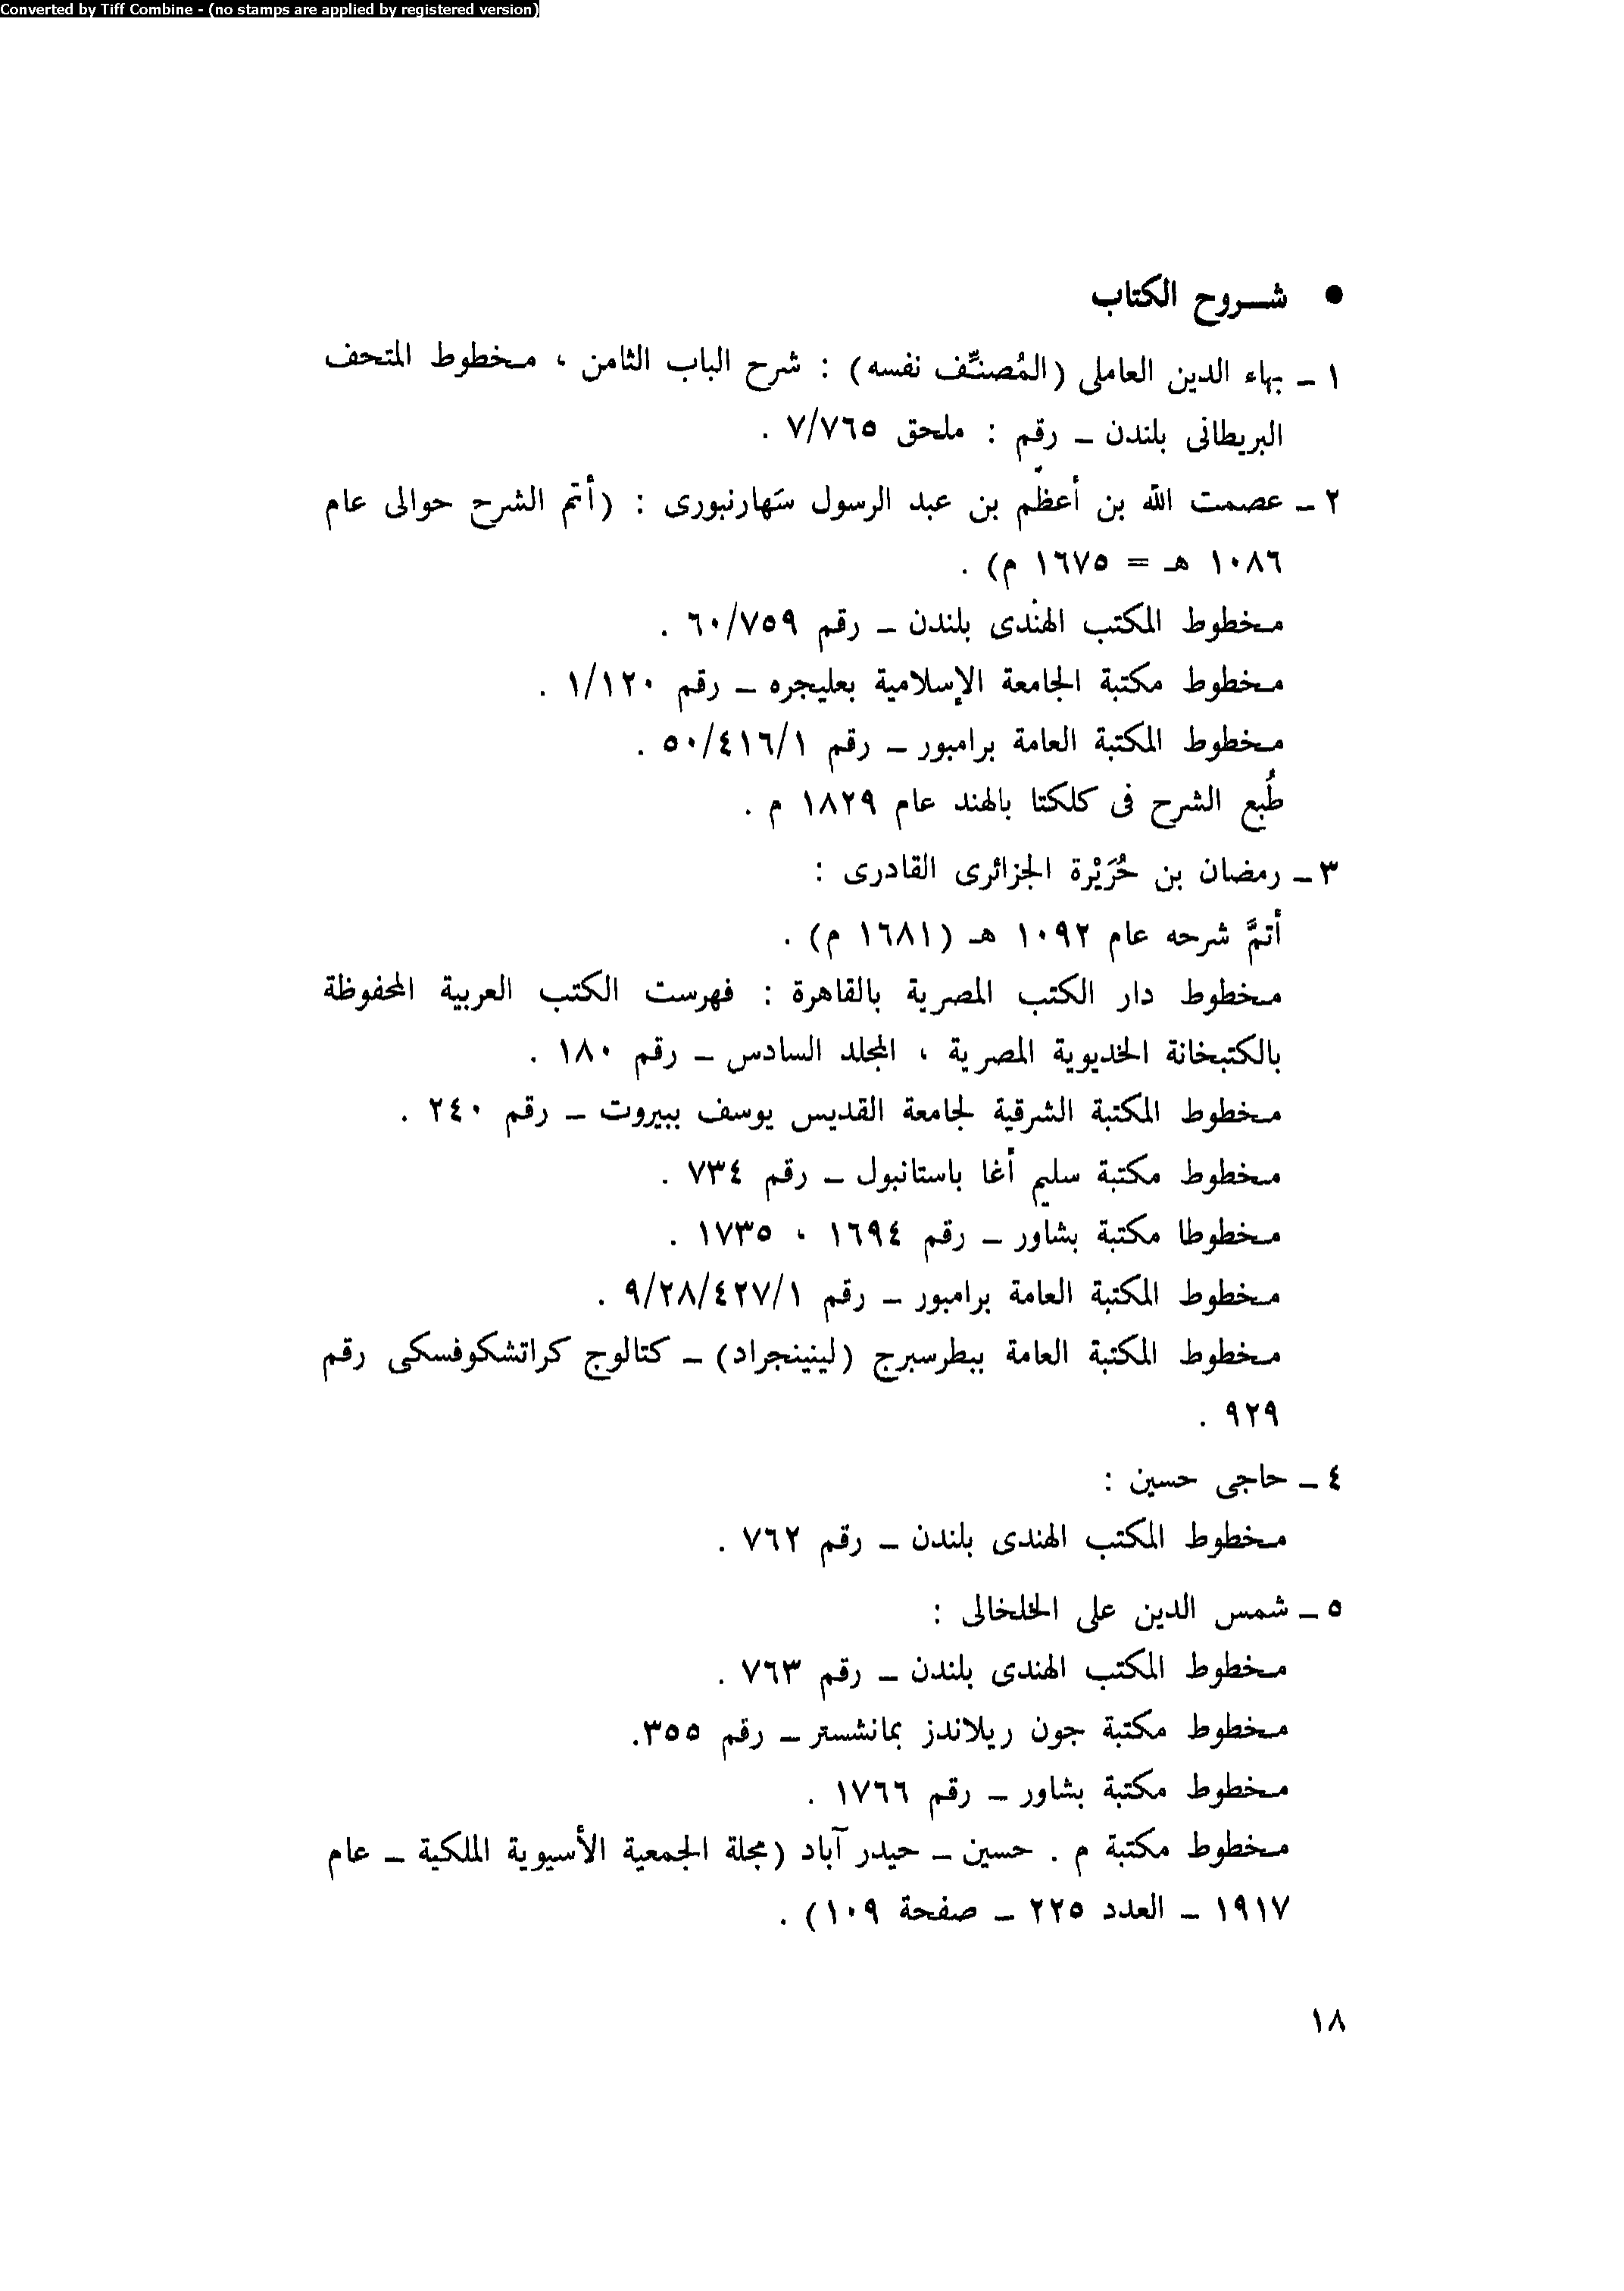 Converted by Tiff Combine - (no stamps are applied by registered version)
● شــروح الكتاب
١ ـ بهاء الدين العاملى (المُصنِّف نفسه) : شرح الباب الثامن ، مخطوط المتحف
البريطانى بلندن ـ رقم : ملحق ٧/٧٦٥ .
٢ ـ عصمت الله بن أعظم بن عبد الرسول سَهارنبورى : (أتم الشرح حوالى عام
١٠٨٦ هـ = ١٦٧٥ م) .
مخطوط المكتب الهندى بلندن ـ رقم ٦٠/٧٥٩ .
مخطوط مكتبة الجامعة الإسلامية بعليجره ـ رقم ١/١٢٠ .
مخطوط المكتبة العامة برامبور ـ رقم ٥٠/٤١٦/١ .
طُبع الشرح فى كلكتا بالهند عام ١٨٢٩ م .
٣ ـ رمضان بن حُرَيْرة الجزائرى القادرى :
أتمَّ شرحه عام ١٠٩٢ هـ (١٦٨١ م) .
مخطوط دار الكتب المصرية بالقاهرة : فهرست الكتب العربية المحفوظة
بالكتبخانة الخديوية المصرية ، المجلد السادس ـ رقم ١٨٠ .
مخطوط المكتبة الشرقية لجامعة القديس يوسف ببيروت ـ رقم ٢٤٠ .
مخطوط مكتبة سليم أغا باستانبول ـ رقم ٧٣٤ .
مخطوطا مكتبة بشاور ـ رقم ١٦٩٤ ، ١٧٣٥ .
مخطوط المكتبة العامة برامبور ـ رقم ٩/٢٨/٤٢٧/١ .
مخطوط المكتبة العامة ببطرسبرج (لينينجراد) ـ كتالوج كراتشكوفسكى رقم
٩٢٩ .
٤ ـ حاجى حسين :
مخطوط المكتب الهندى بلندن ـ رقم ٧٦٢ .
٥ ـ شمس الدين على الخلخالى :
مخطوط المكتب الهندى بلندن ـ رقم ٧٦٣ .
مخطوط مكتبة جون ريلاندز بمانشستر ـ رقم ٣٥٥.
مخطوط مكتبة بشاور ـ رقم ١٧٦٦ .
مخطوط مكتبة م . حسين ـ حيدر آباد (مجلة الجمعية الأسيوية الملكية ـ عام
١٩١٧ ـ العدد ٢٢٥ ـ صفحة ١٠٩) .
١٨